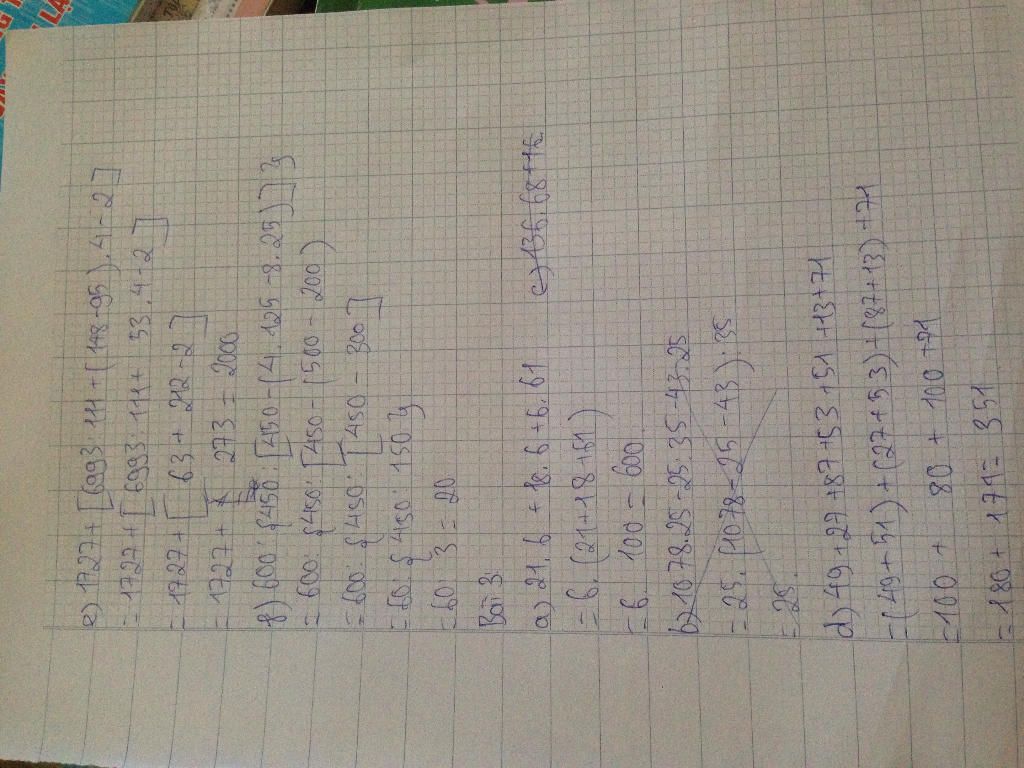 e) 1727 + [6993 : 111 + (148 - 95) . 4 - 2]
= 1727 + [6993 : 111 + 53 . 4 - 2]
= 1727 + [63 + 212 - 2]
= 1727 + 273 = 2000
g) 600 : {450 : [450 - (4 . 125 - 8 . 25)]}
= 600 : {450 : [450 - (500 - 200)
= 600 : {450 : [450 - 300]
= 60 : {450 : 150}
= 60 3 = 20
Bài 3:
a) 21 . 6 + 18 . 6 + 6 . 61 c) 136 . 68 + 16
= 6 . (21 + 18 + 61)
= 6 . 100 = 600
b) 1078 . 25 - 25 . 35 - 43 . 25
= 25 . (1078 - 25 - 43) . 35
= 25 .
d) 49 + 27 + 87 + 53 + 51 + 13 + 71
= (49 + 51) + (27 + 53) + (87 + 13) + 71
= 100 + 80 + 100 + 71
= 180 + 171 = 351